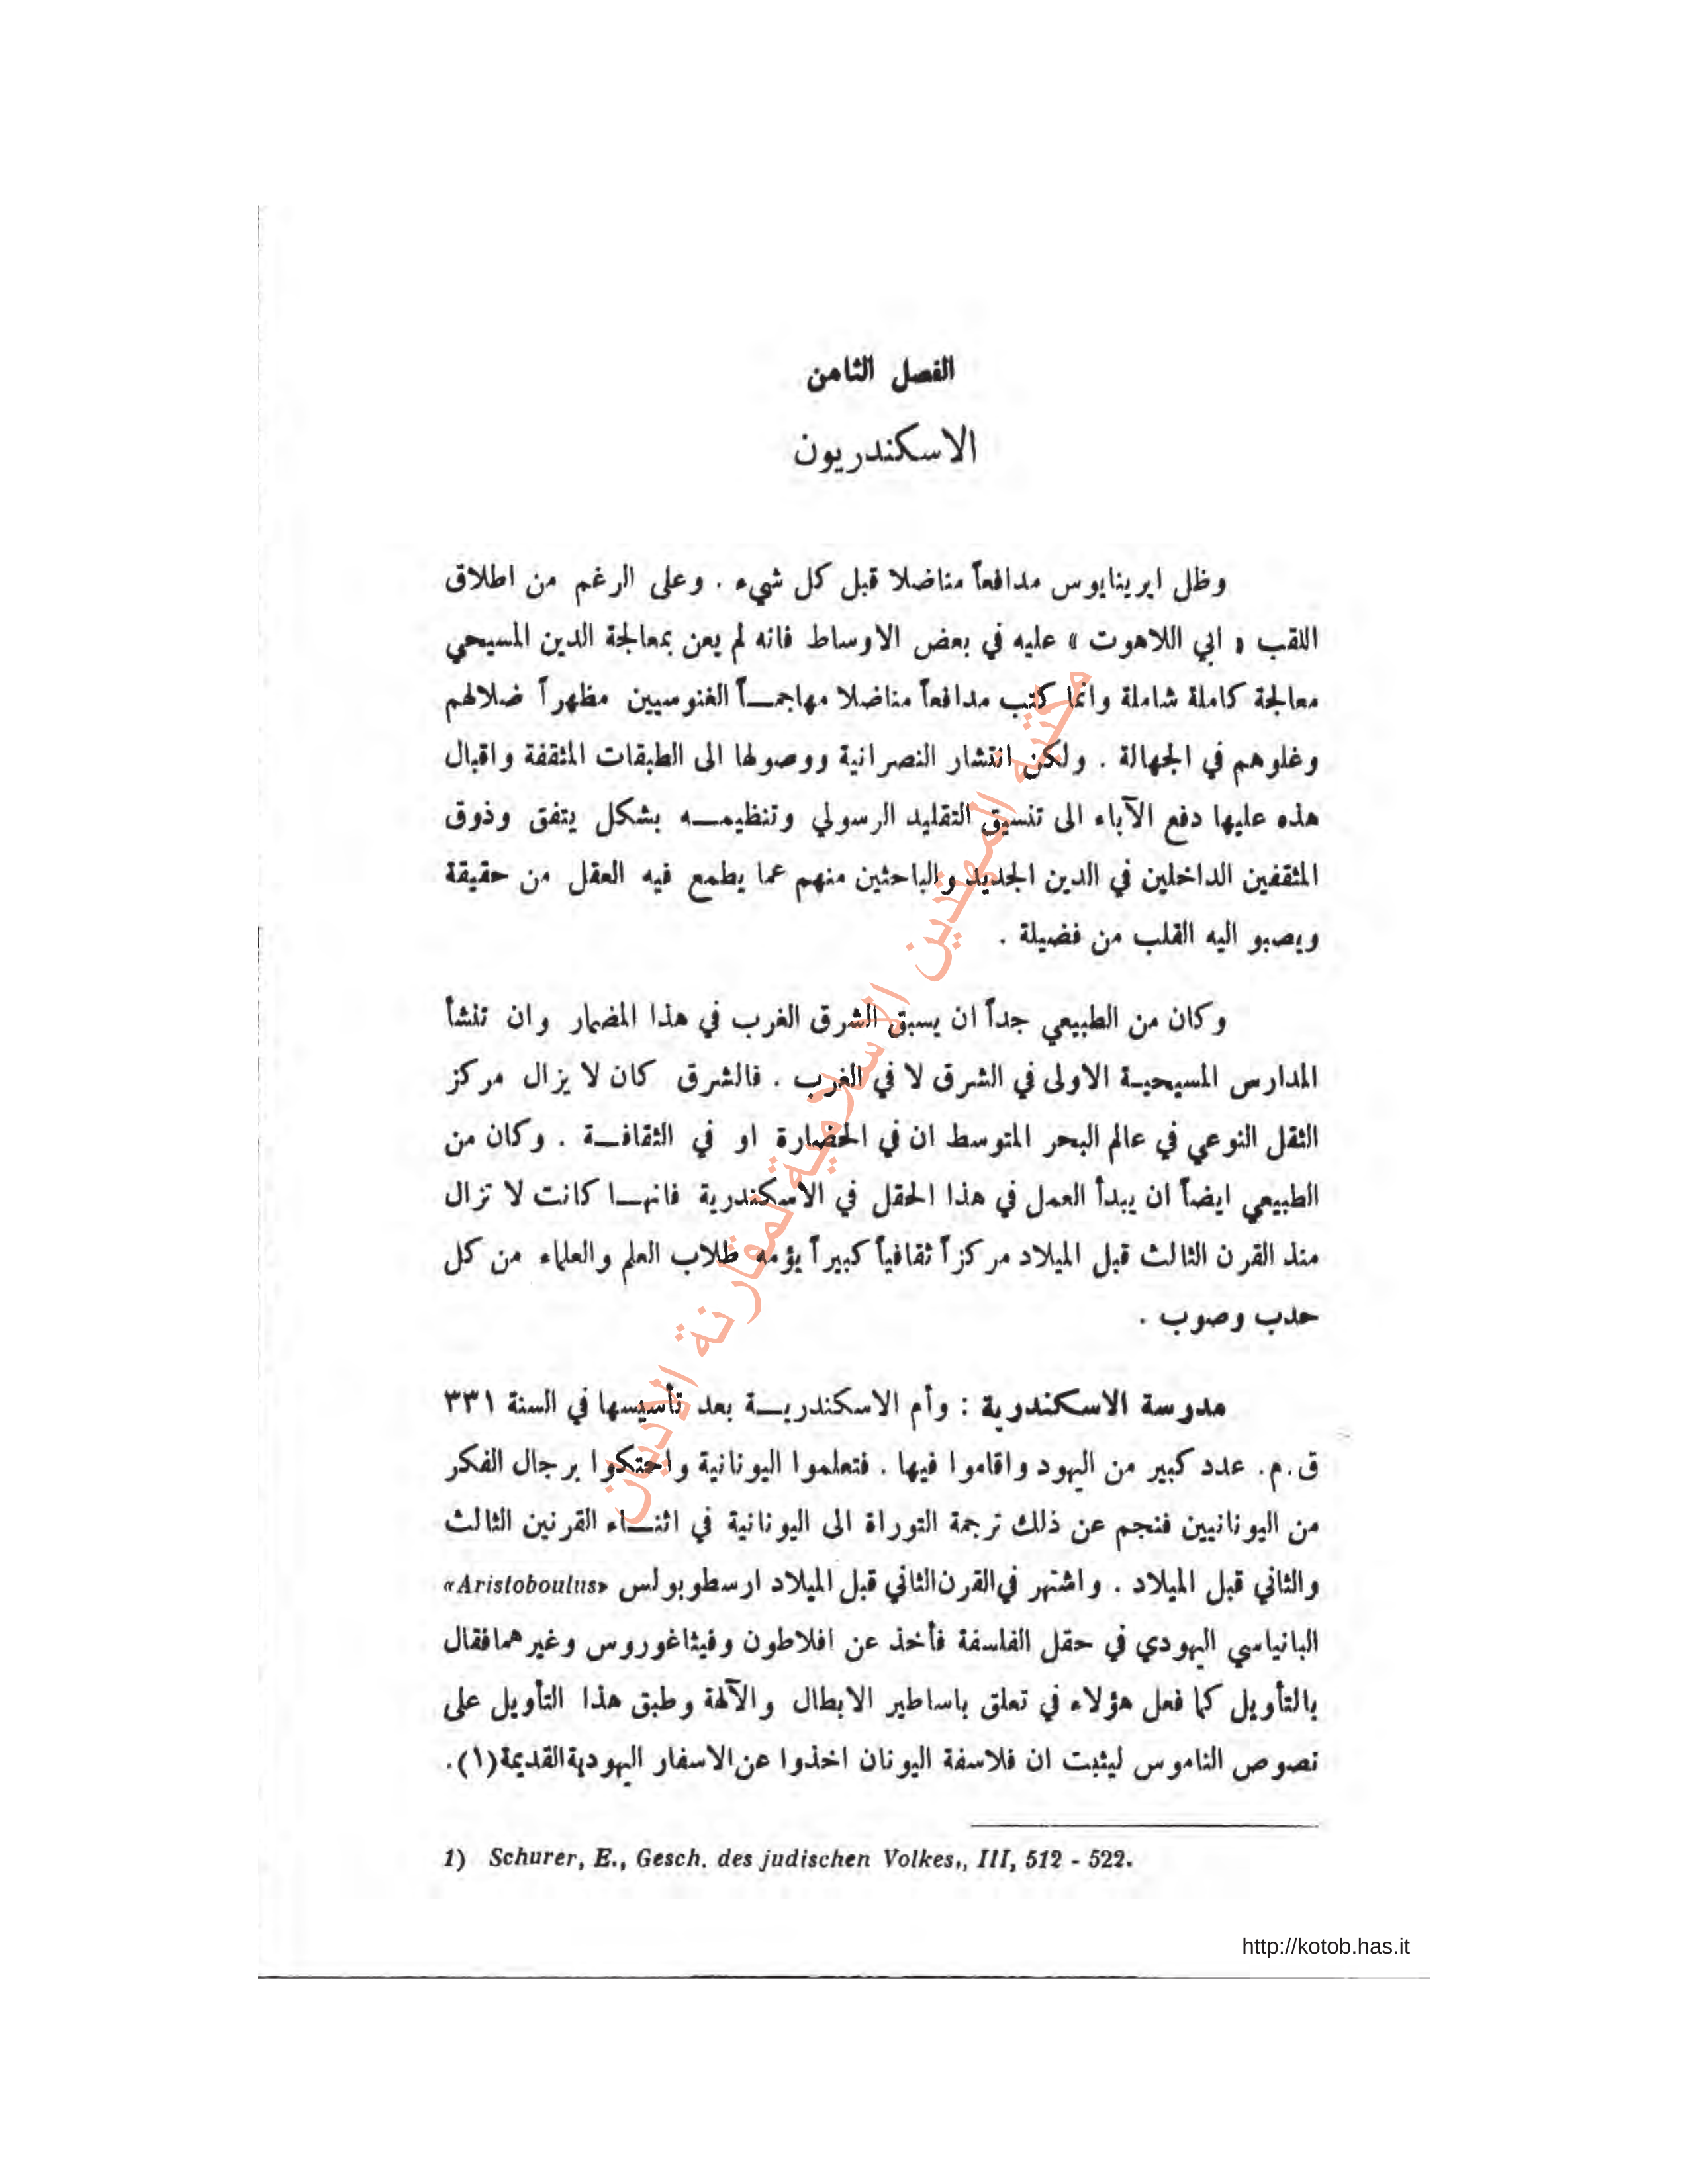 الفصل الثامن
الاسكندريون
وظل ايرينايوس مدافعاً مناضلا قبل كل شيء . وعلى الرغم من اطلاق
اللقب « ابي اللاهوت » عليه في بعض الاوساط فانه لم يعن بمعالجة الدين المسيحي
معالجة كاملة شاملة وانما كتب مدافعاً مناضلا مهاجمـــاً الغنوسيين مظهراً ضلالهم
وغلوهم في الجهالة . ولكن انتشار النصرانية ووصولها الى الطبقات المثقفة واقبال
هذه عليها دفع الآباء الى تنسيق التقليد الرسولي وتنظيمـــه بشكل يتفق وذوق
المثقفين الداخلين في الدين الجديد والباحثين منهم عما يطمع فيه العقل من حقيقة
ويصبو اليه القلب من فضيلة .
وكان من الطبيعي جداً ان يسبق الشرق الغرب في هذا المضمار وان تنشأ
المدارس المسيحيـة الاولى في الشرق لا في الغرب . فالشرق كان لا يزال مركز
الثقل النوعي في عالم البحر المتوسط ان في الحضارة او في الثقافـــة . وكان من
الطبيعي ايضاً ان يبدأ العمل في هذا الحقل في الاسكندرية فانهـــا كانت لا تزال
منذ القرن الثالث قبل الميلاد مركزاً ثقافياً كبيراً يؤمه طلاب العلم والعلماء من كل
حدب وصوب .
مدرسة الاسكندرية : وأم الاسكندريـــة بعد تأسيسها في السنة ٣٣١
ق.م. عدد كبير من اليهود واقاموا فيها . فتعلموا اليونانية واحتكوا برجال الفكر
من اليونانيين فنجم عن ذلك ترجمة التوراة الى اليونانية في اثنـــاء القرنين الثالث
والثاني قبل الميلاد . واشتهر في القرن الثاني قبل الميلاد ارسطوبولس «Aristoboulus»
البانياسي اليهودي في حقل الفلسفة فأخذ عن افلاطون وفيثاغوروس وغيرهما فقال
بالتأويل كما فعل هؤلاء في تعلق باساطير الابطال والآلهة وطبق هذا التأويل على
نصوص الناموس ليثبت ان فلاسفة اليونان اخذوا عن الاسفار اليهودية القديمة (١).
1) Schurer, E., Gesch. des judischen Volkes,, III, 512 - 522.
http://kotob.has.it
مكتبة المهتدين الاسلامية لمقارنة الاديان